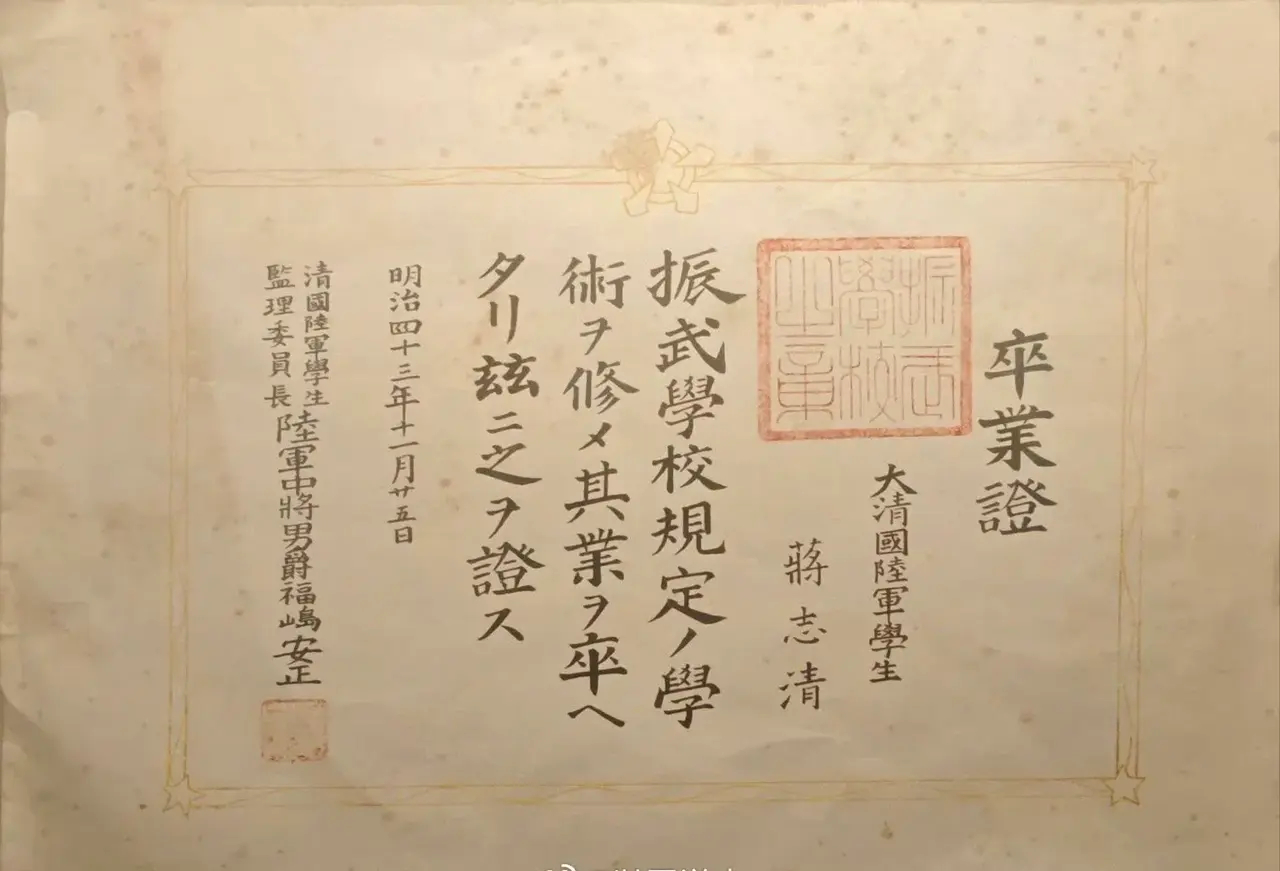 卒業證
振武學校之章
大清國陸軍學生
蔣志清
振武學校規定ノ學
術ヲ修メ其業ヲ卒ヘ
タリ玆ニ之ヲ證ス
明治四十三年十一月廿五日
清國陸軍學生
監理委員長陸軍中將男爵福嶋安正